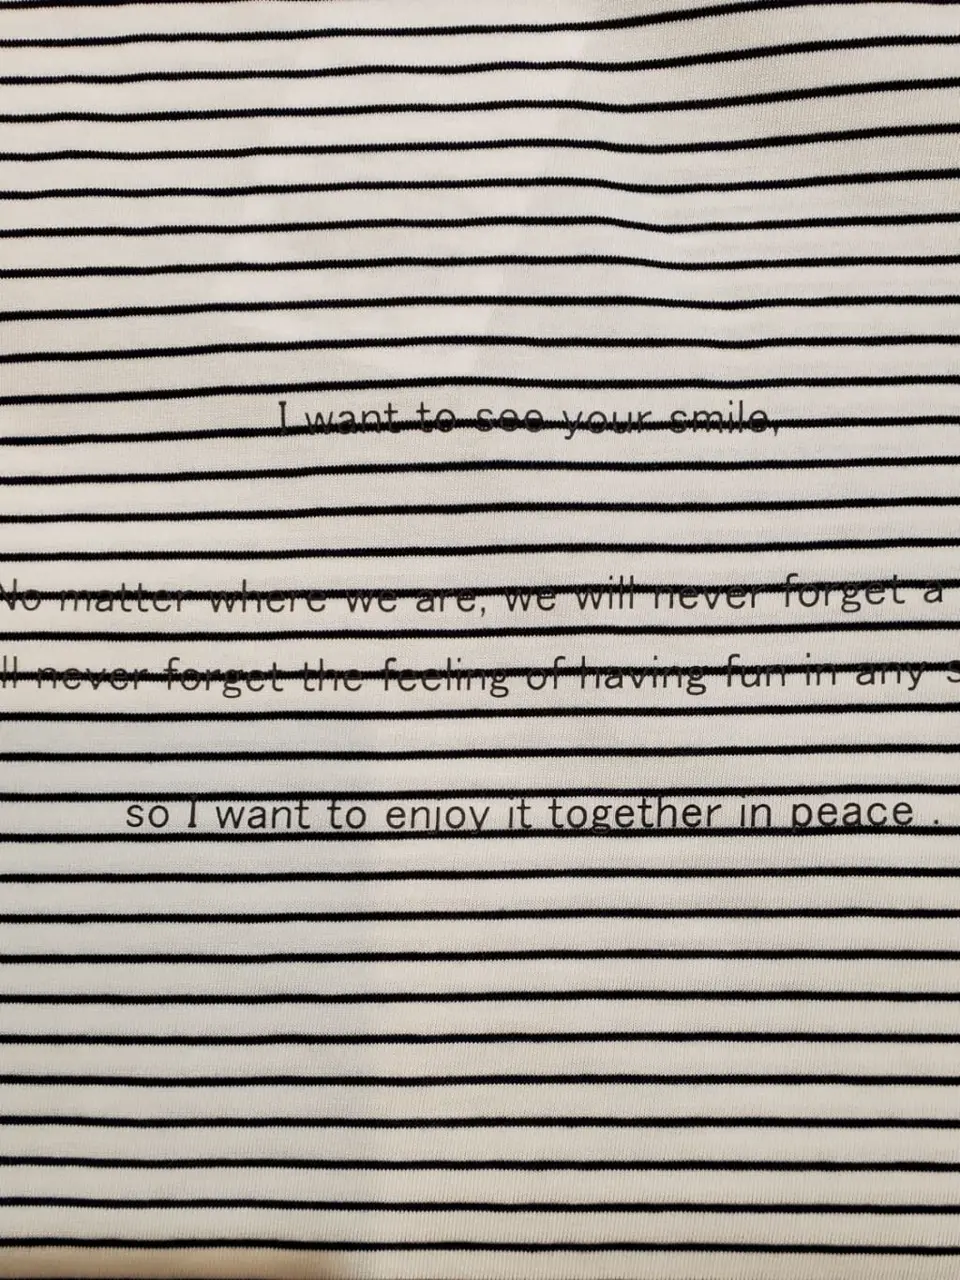 I want to see your smile,
No matter where we are, we will never forget a
ll never forget the feeling of having fun in any s
so I want to enjoy it together in peace .